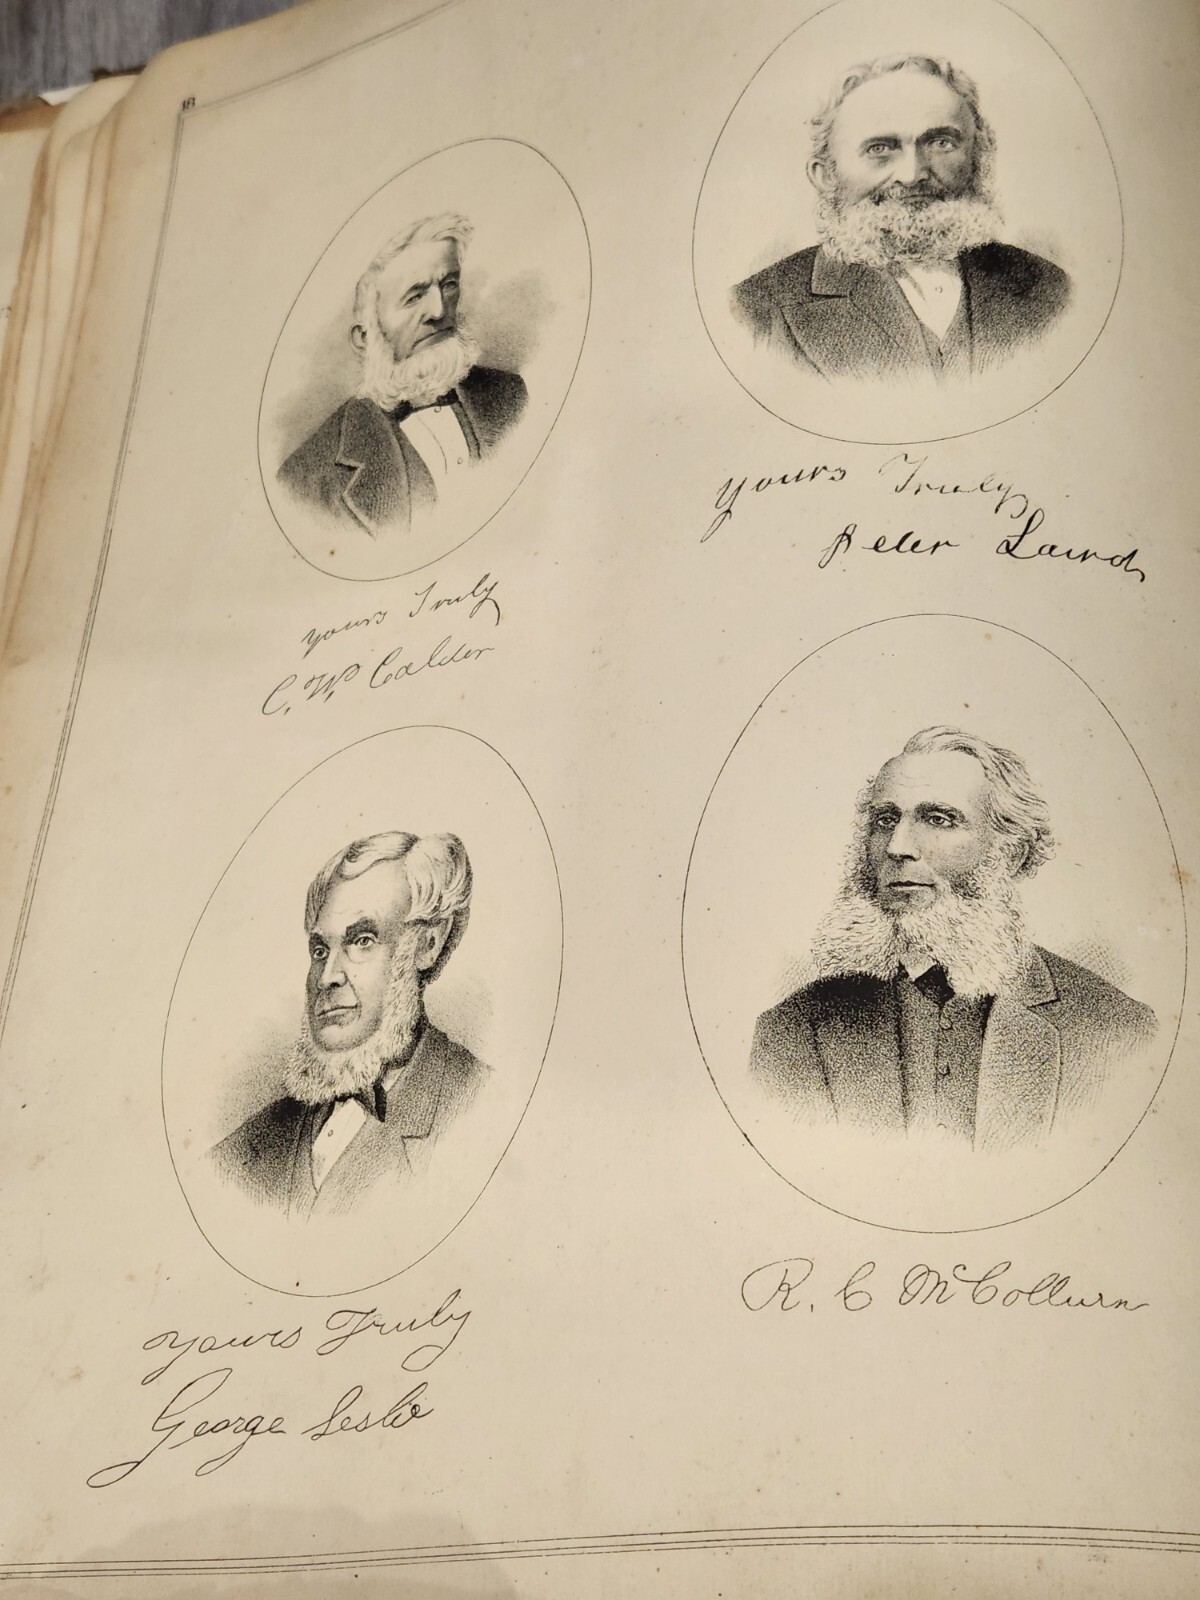 18
yours Truly
C. W. Calder
yours Truly
Peter Laird
yours Truly
George Leslie
R. C McCollum